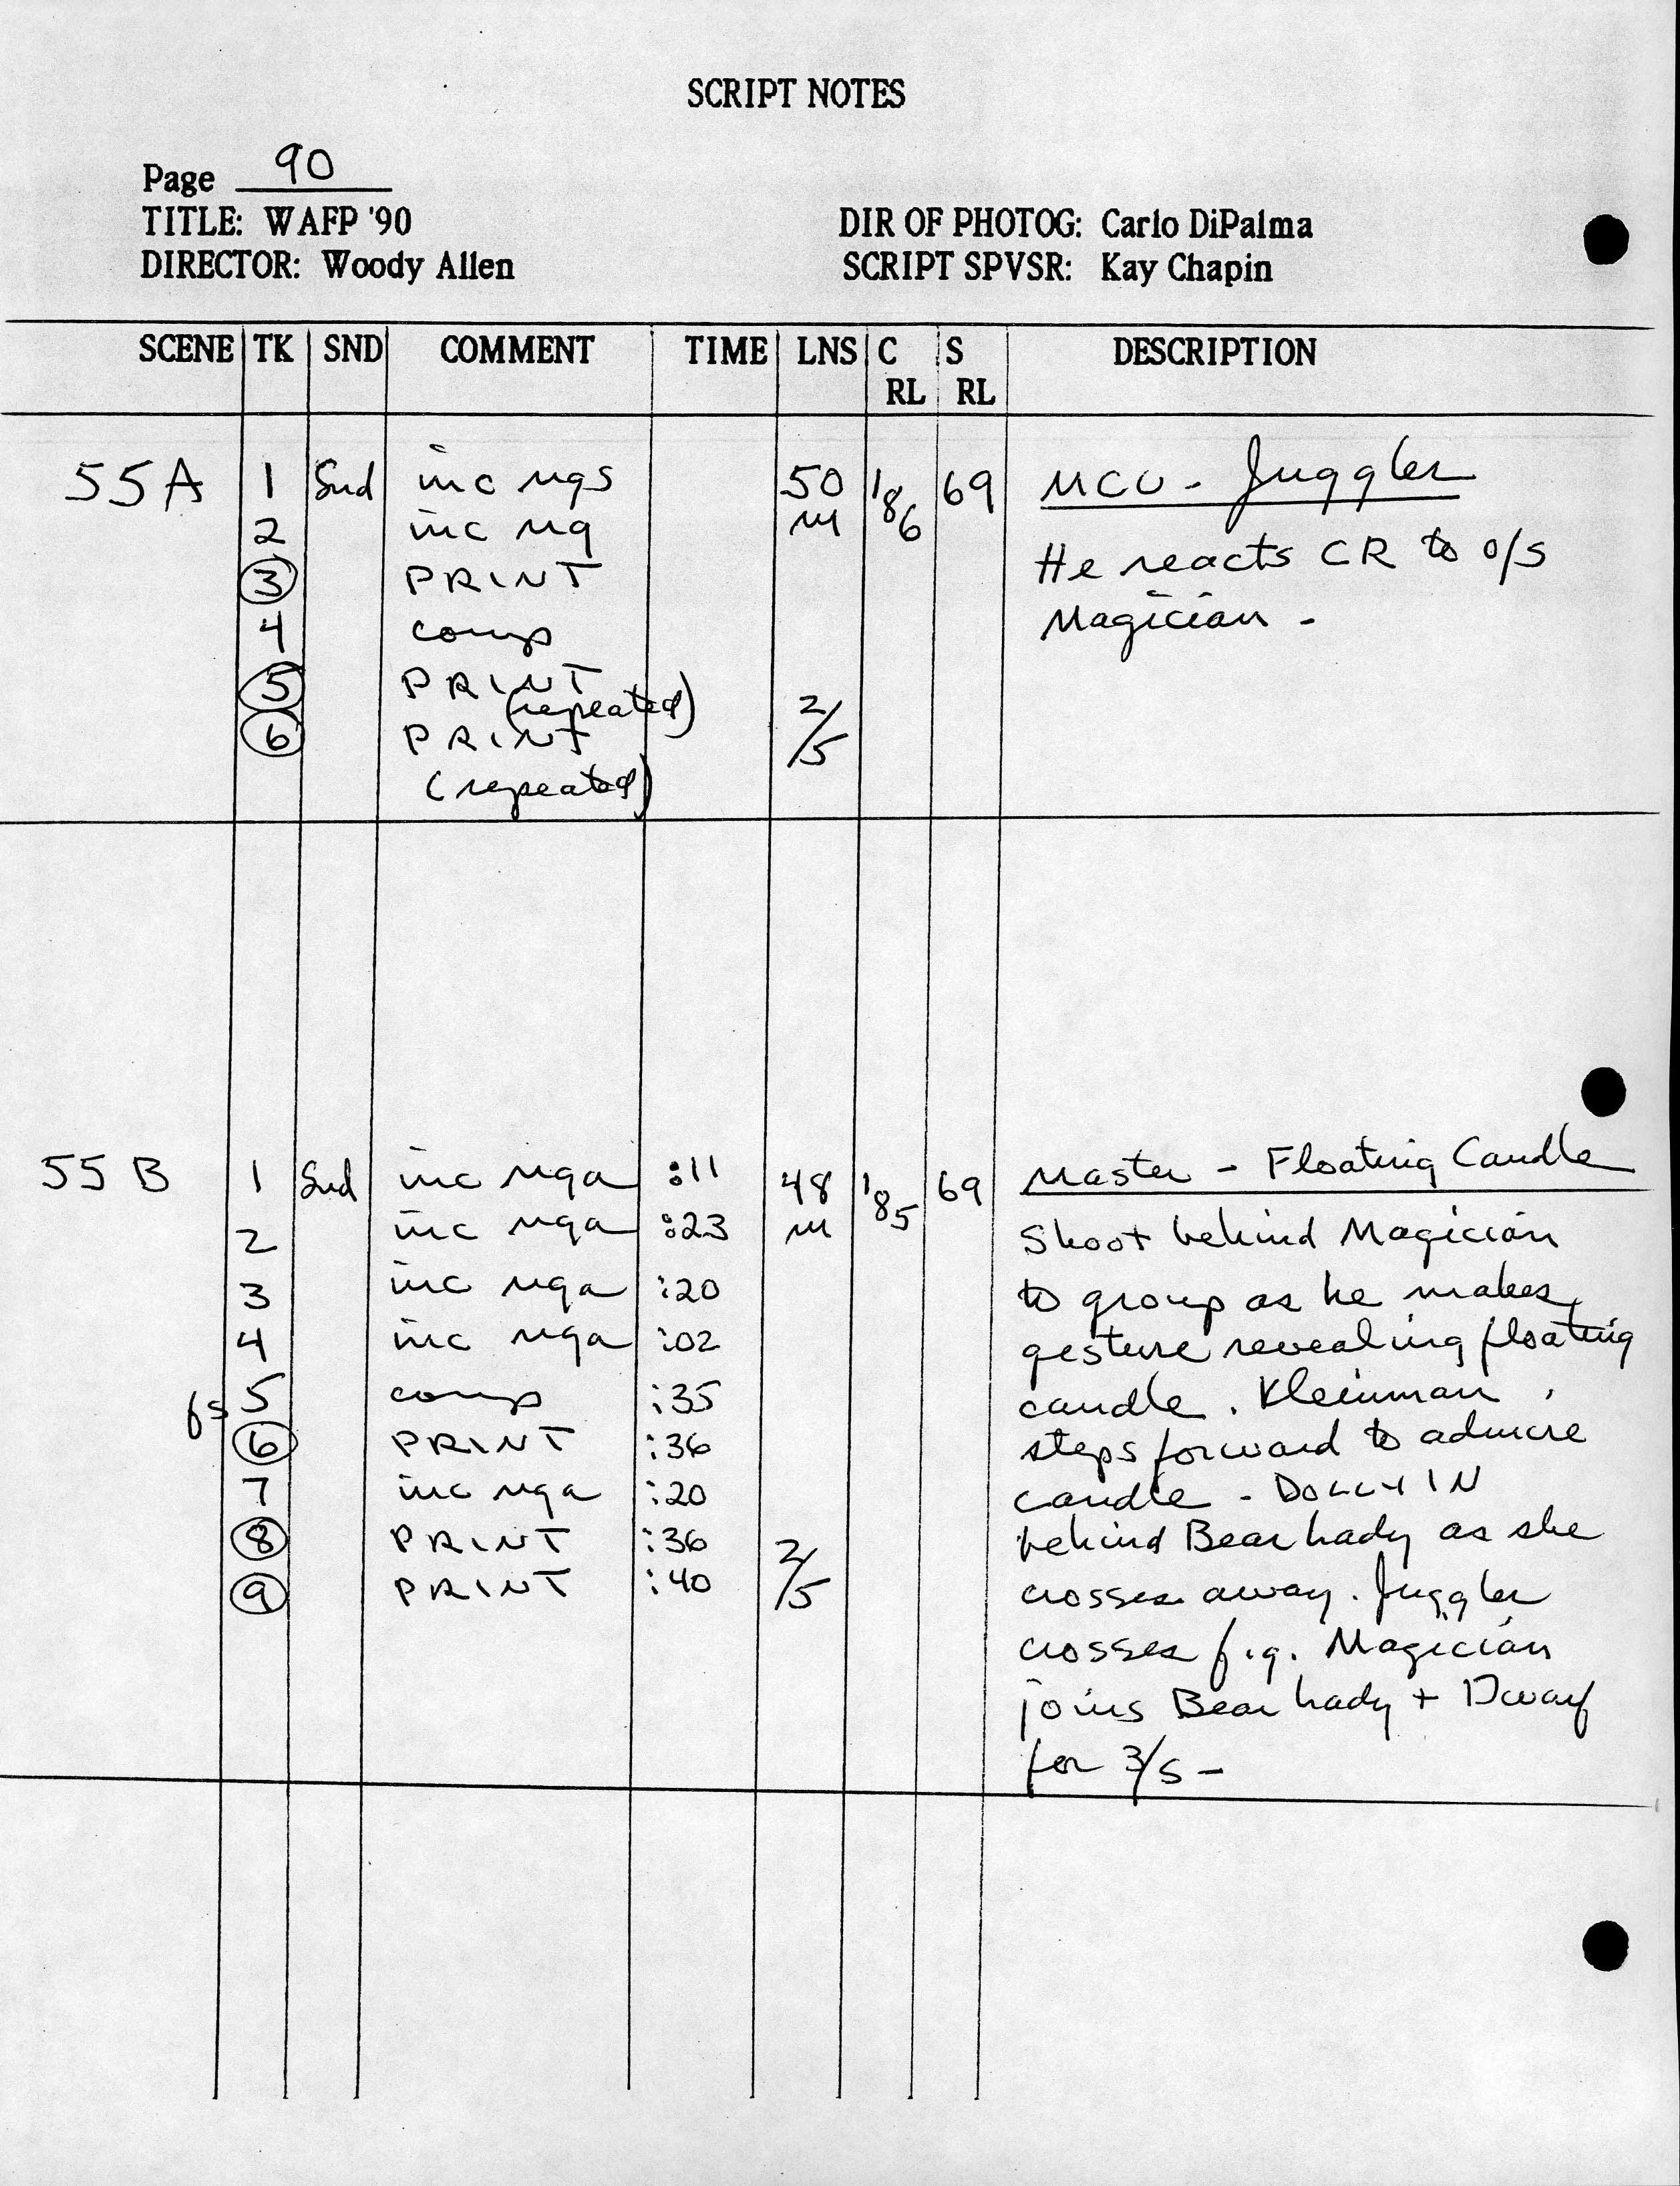 SCRIPT NOTES
Page 90
TITLE: WAFP '90
DIR OF PHOTOG: Carlo DiPalma
DIRECTOR: Woody Allen
SCRIPT SPVSR: Kay Chapin
SCENE TK SND COMMENT TIME LNS C RL S RL DESCRIPTION
55A 1 Snd inc ngs 50 186 69 MCU - Juggler
2 inc ng m
3 PRINT He reacts CR to o/s
4 comp Magician -
5 PRINT
(repeated)
6 PRINT 2/5
(repeated)
55B 1 Snd inc nga :11 48 185 69 Master - Floating Candle
2 inc nga :23 m Shoot behind Magician
3 inc nga :20 to group as he makes
4 inc nga :02 gesture revealing floating
fs 5 comp :35 candle. Kleinman
6 PRINT :36 steps forward to admire
7 inc nga :20 candle - DOLLY IN
8 PRINT :36 behind Bear Lady as she
9 PRINT :40 2/5 crosses away. Juggler
crosses f.g. Magician
joins Bear Lady + Dwarf
for 3/s -